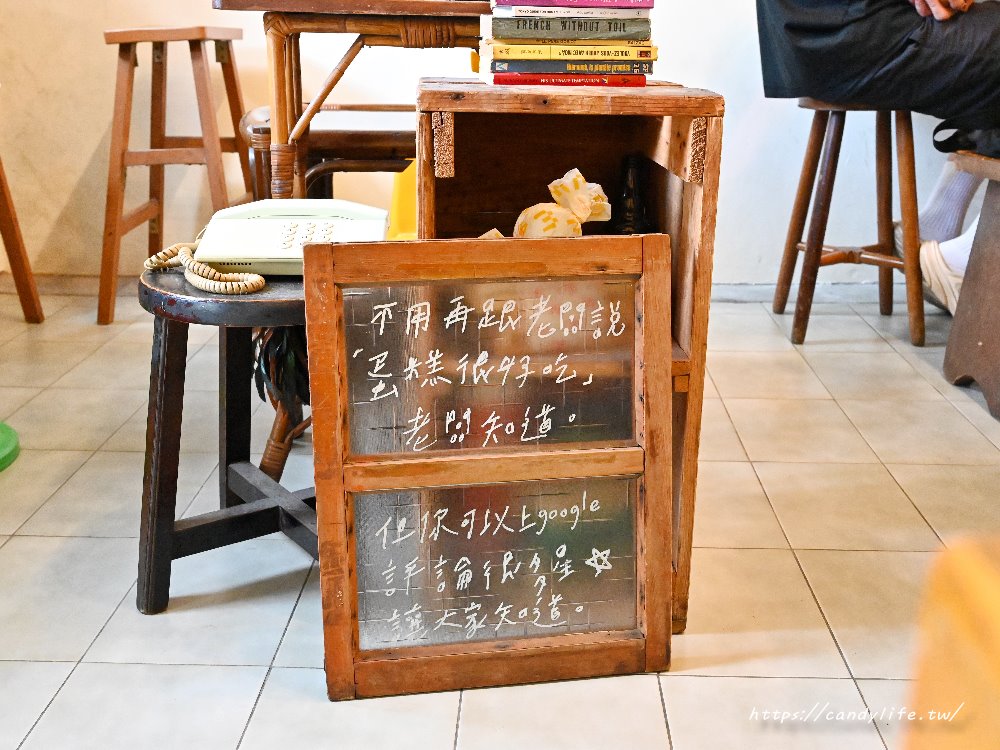 FRENCH WITHOUT TOIL
HIS ULTIMATE TEMPTATION
不用再跟老闆說
「蛋糕很好吃」
老闆知道。
但你可以上google
評論很多星☆
讓大家知道。
https://candylife.tw/